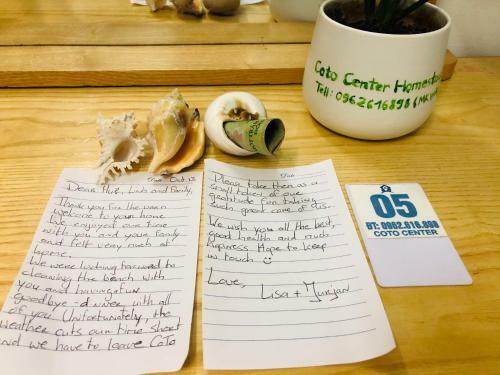 Coto Center Homestay
Tell: 0962616898 (Mr
Sun Oct 12
Dear Huz, Linb and family,
Thank you for the warm
welcome to your home
We enjoyed our time
with you and your family
and felt very much at
home.
We were looking forward to
cleaning the beach with
you and having a fun
Goodbye-dinner with all
of you. Unfortunately, the
weather cuts our time short
and we have to leave CoTo
Please take them as a
small token of our
gratitude for taking
such great care of us.
We wish you all the best,
good health and much
happiness. Hope to keep
in touch
Love,
Lisa + Munjan
05
ĐT: 0962.616.898
COTO CENTER